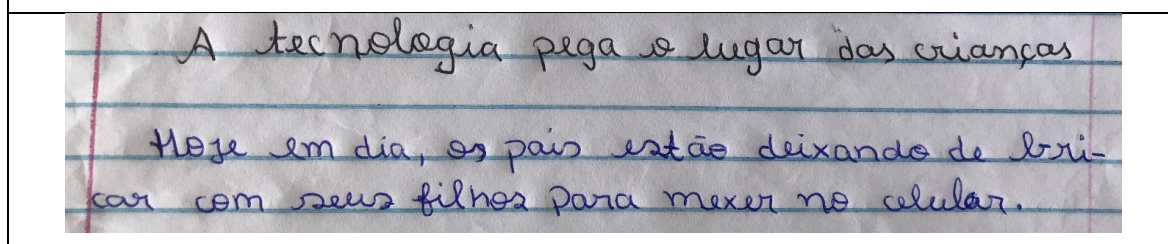 A tecnologia pega o lugar das crianças
Hoje em dia, os pais estão deixando de bri-
car com seus filhos para mexer no celular.